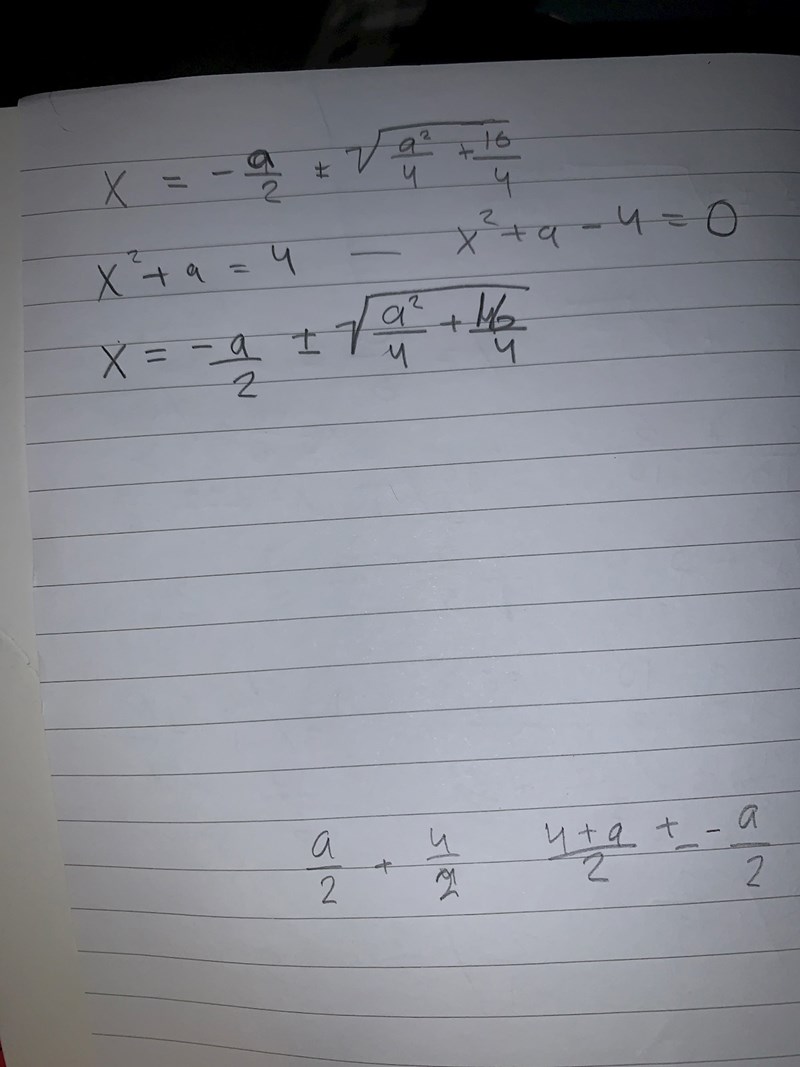 x = -a/2 ± √(a²/4 + 16/4)
x² + a = 4 — x² + a - 4 = 0
x = -a/2 ± √(a²/4 + 16/4)
a/2 + 4/2 (4+a)/2 ± -a/2